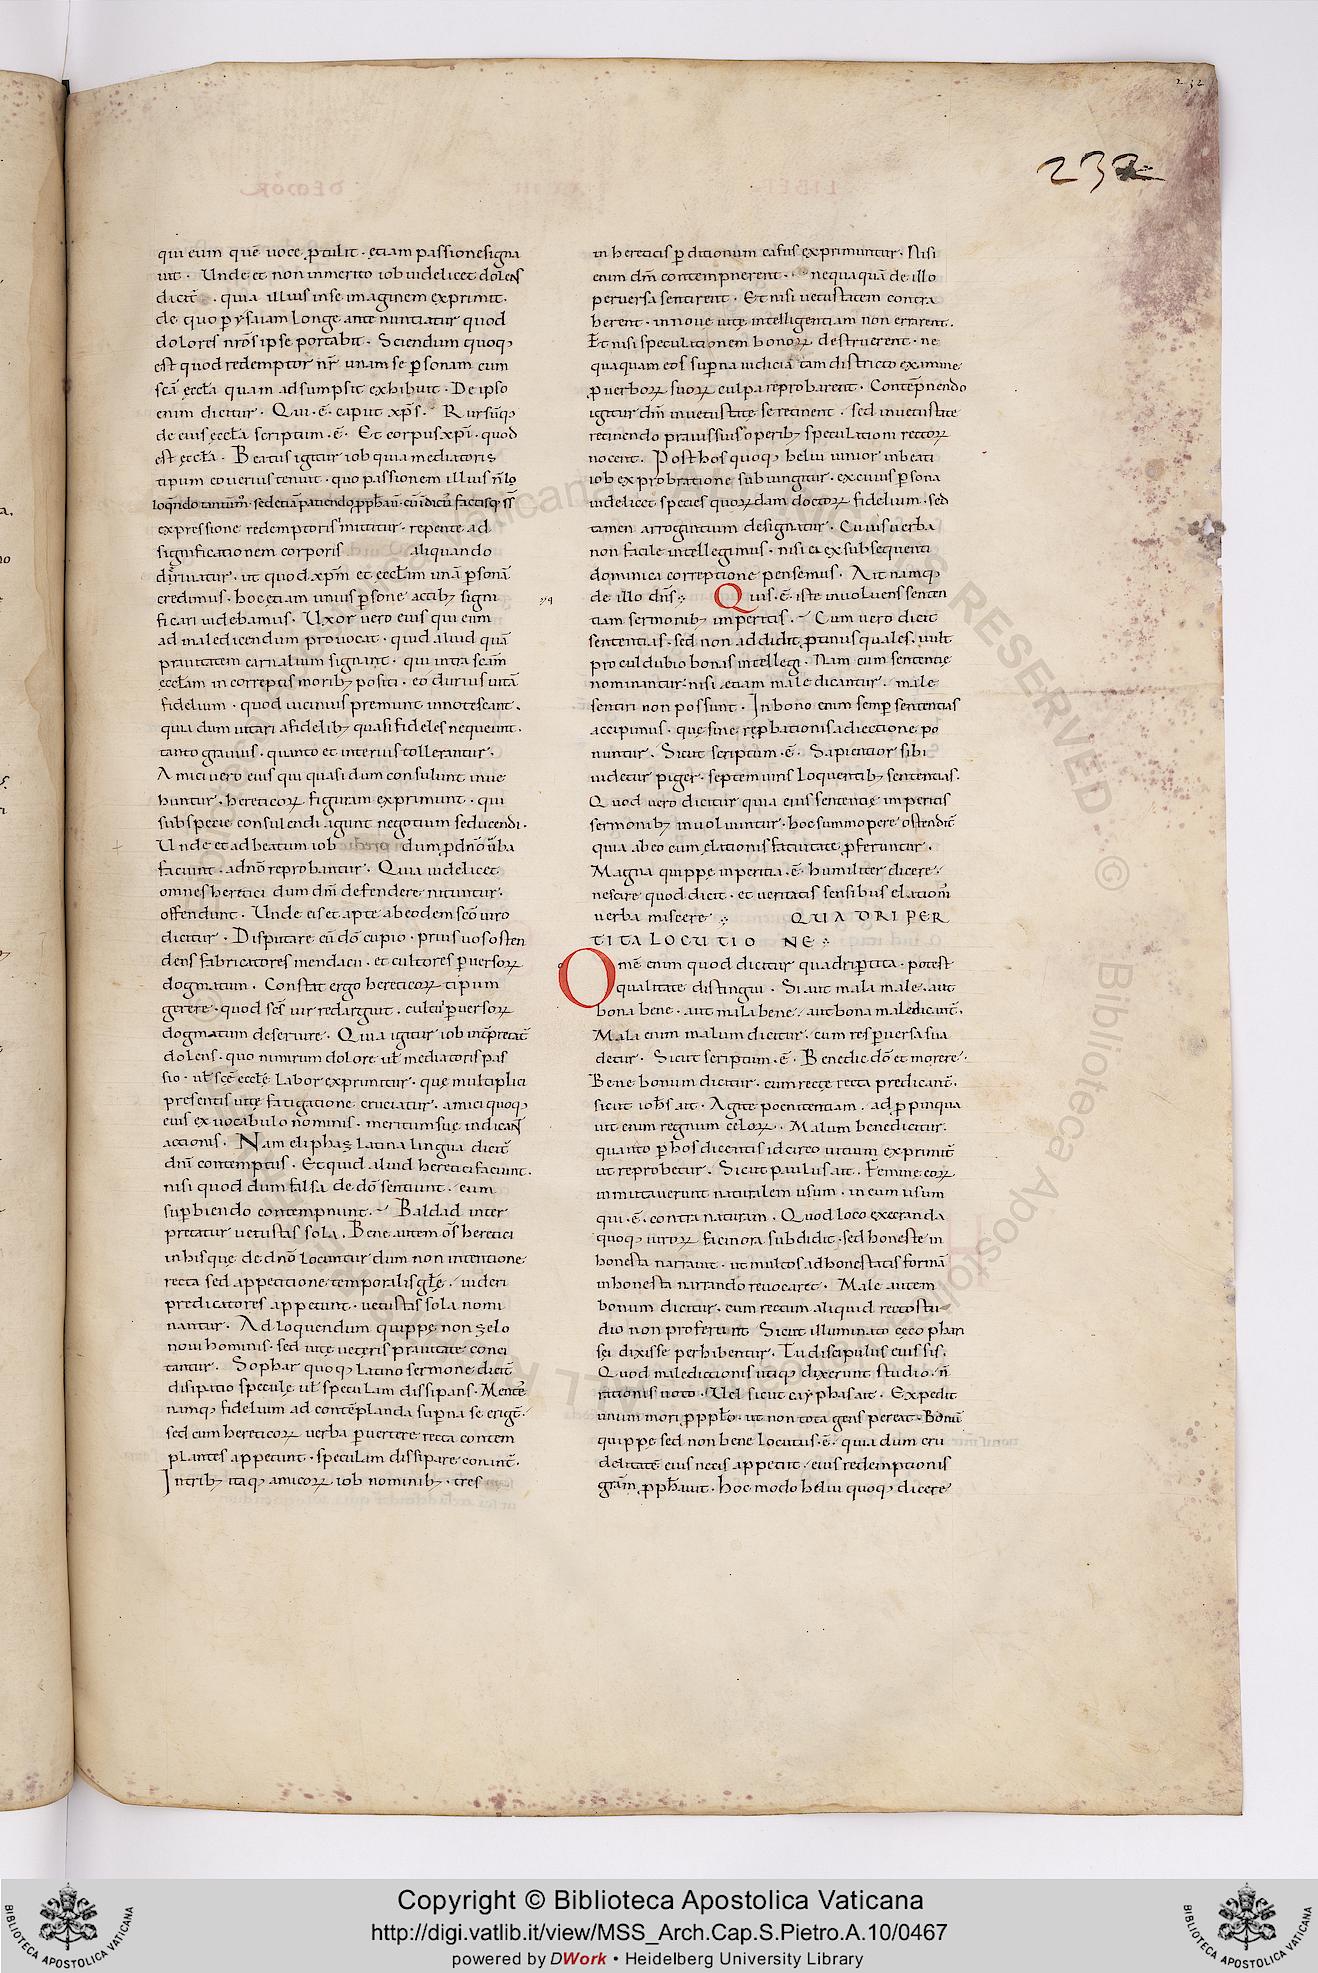 232
232
qui eum quē uoce ꝑtulit · etiam passione signa
uit · Unde et non inmerito iob uidelicet dolens
dicit̄ · quia illius in se imaginem exprimit ·
de quo ꝑ ysaiam longe ante nuntiatur quod
dolores nr̄os ipse portabit · Sciendum quoq;
est quod redemptor nr̄ unam se ꝑsonam cum
scā ęccl̄a quam adsumpsit exhibuit · De ipso
enim dicitur · Qui · ē · caput xp̄s · Rursūq;
de eius ęccl̄a scriptum · ē · Et corpus xp̄i · quod
est ęccl̄a · Beatus igitur iob quia mediatoris
tipum eo uerius tenuit · quo passionem illius n̄ lo
expressione redemptoris innititur · repente ad
significationem corporis aliquando
diriuatur · ut quod xp̄m et eccl̄am unā ꝑsonā
credimus · hoc etiam unius ꝑsone actib; signi
ficari uidebamus · Uxor uero eius qui eum
ad maledicendum prouocat · quid aliud quā
prauitatem carnalium signant · qui intra scām
ęccl̄am incorreptis morib; positi · eo durius uitā
fidelium · quod uicinius premunt innotescant ·
quia dum uitari a fidelib; quasi fideles nequeunt ·
tanto grauius · quanto et interius tollerantur ·
Amici uero eius qui quasi dum consulunt inue
huntur · hereticoꝝ figuram exprimunt · qui
sub specie consulendi agunt negotium seducendi ·
Unde et ad beatum iob dum ꝓ dn̄o ūba
faciunt · a dn̄o reprobantur · Quia uidelicet
omnes heretici dum dm̄ defendere nituntur ·
offendunt · Unde eis et apte ab eodem scō uiro
dicitur · Disputare cū dō cupio · prius uos osten
dens fabricatores mendacii · et cultores ꝑuersoꝝ
dogmatum · Constat ergo hereticoꝝ tipum
gerere · quod scs̄ uir redarguit · cultui ꝑuersoꝝ
dogmatum deseruire · Quia igitur iob int̄pretat̄
dolens · quo nimirum dolore ut̄ mediatoris pas
sio · ut̄ scē eccl̄ę labor exprimitur · quę multiplici
presentis uitę fatigatione cruciatur · amici quoq;
eius ex uocabulo nominis · meritum suę indicant
actionis · Nam eliphaz latina lingua dicit̄
dn̄i contemptus · Et quid aliud heretici faciunt ·
nisi quod dum falsa de dō sentiunt · eum
suꝑbiendo contempnunt · Baldad inter
pretatur uetustas sola · Bene autem om̄s heretici
in his que de dn̄o locuntur dum non intentione
recta sed appetitione temporalis gl̄ę · uideri
predicatores appetunt · uetustas sola nomi
nantur · Ad loquendum quippe non zelo
noui hominis · sed uitę ueteris prauitate conci
tantur · Sophar quoq; latino sermone dicit̄
dissipatio speculę ut̄ speculam dissipans · Mentē
namq; fidelium ad contēplanda suꝑna se erigit̄ ·
sed cum hereticoꝝ uerba ꝑuertere recta contem
plantes appetunt · speculam dissipare conant̄ ·
In trib; itaq; amicoꝝ iob nominib; · tres
in hereticis ꝑditionum casus exprimuntur · Nisi
enim dm̄ contempnerent · nequaquā de illo
peruersa sentirent · Et nisi uetustatem contra
herent · in noue uitę intelligentiam non errarent ·
Et nisi speculationem bonoꝝ destruerent · ne
quaquam eos suꝑna iudicia tam districto examine
ꝓ uerboꝝ suoꝝ culpa reprobarent · Contēpnendo
igitur dm̄ in uetustate se retinent · sed in uetustate
retinendo prauis suis operib; speculationi rectoꝝ
nocent · Post hos quoq; heliu iunior in beati
iob exprobratione subiungitur · ex cuius ꝑsona
uidelicet species quorꝝdam doctoꝝ fidelium · sed
tamen arrogantium designatur · Cuius uerba
non facile intellegimus · nisi ea ex subsequenti
dominica correptione pensemus · Ait namq;
de illo dn̄s Quis · ē · iste inuoluens senten
tiam sermonib; imperitis · Cum uero dicit
sententias · sed non addidit ꝓtinus quales · uult
pro cul dubio bonas intellegi · Nam cum sententię
nominantur · nisi etiam male dicantur · male
sentiri non possunt · In bono enim semꝑ sententias
accipimus · quę sine reꝓbationis adiectione po
nuntur · Sicut scriptum · ē · Sapientior sibi
uidetur piger · septem uiris loquentib; sententias ·
Quod uero dicitur quia eius sententię imperitis
sermonib; inuoluuntur · hoc summopere ostendit̄
quia ab eo cum elationis fatuitate ꝓferuntur ·
Magna quippe inperitia · ē · humiliter dicere ·
nescire quod dicit · et ueritatis sensibus elationū
uerba miscere QUADRIPER
TITA LOCUTIONE
Omē enim quod dicitur quadriꝑtita · potest
qualitate distingui · Si aut mala male · aut
bona bene · aut mala bene · aut bona male dicant̄ ·
Mala enim malum dicitur · cum res ꝑuersa sua
detur · Sicut scriptum · ē · Benedic dō et morere ·
Bene bonum dicitur · cum recte recta predicant̄ ·
sicut ioh̄s ait · Agite poenitentiam · adꝓpinqua
uit enim regnum celoꝝ · Malum bene dicitur ·
quanto ꝑ hos dicentis idcirco uitium exprimit̄
ut reprobetur · Sicut paulus ait · Femine eoꝝ
inmutauerunt naturalem usum · in eum usum
qui · ē · contra naturam · Quo loco execranda
quoq; uiroꝝ facinora subdidit · sed honeste in
honesta narrauit · ut multos ad honestatis formā
inhonesta narrando reuocaret · Male autem
bonum dicitur · cum rectum aliquid recto stu
dio non proferunt Sicut illuminato ceco phari
sei dixisse perhibentur · Tu discipulus eius sis ·
Quod maledictionis utiq; dixerunt studio · n̄
rationis uoto · Vel sicut cayphas ait · Expedit
unum mori ꝓ ppl̄o · ut non tota gens pereat · Bonū
quippe sed non bene locutus · ē · quia dum cru
delitatē eius necis appetiit · eius redemptionis
gr̄am ꝓph̄auit · hoc modo heliu quoq; dicere
Copyright © Biblioteca Apostolica Vaticana
http://digi.vatlib.it/view/MSS_Arch.Cap.S.Pietro.A.10/0467
powered by DWork • Heidelberg University Library
BIBLIOTECA APOSTOLICA VATICANA
BIBLIOTECA APOSTOLICA VATICANA